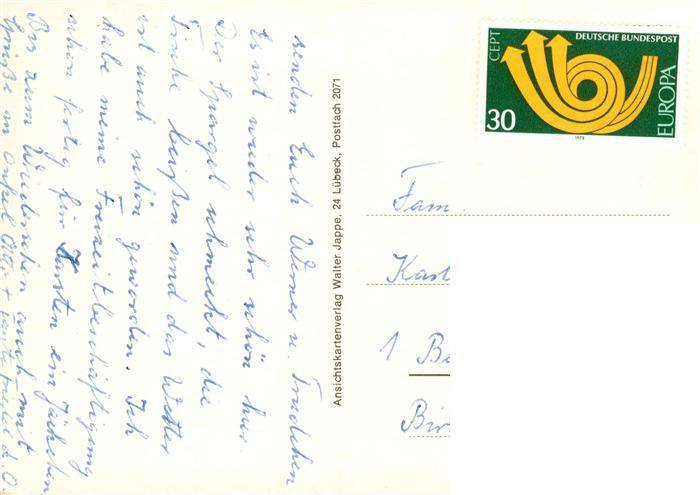 senden Euch Werner u. Trudchen
Es ist wieder sehr schön hier.
Der Spargel schmeckt, die
Fische beißen und das Wetter
ist auch schön geworden. Ich
habe meine Freizeitbeschäftigung
schon fertig für Karsten ein Jäckchen
Bis zum Wiedersehen auch mit
Grüße an Onkel Otto +
Ansichtskartenverlag Walter Jappe, 24 Lübeck, Postfach 2071
CEPT
DEUTSCHE BUNDESPOST
EUROPA
30
1973
Fam.
Karl
1 Be
Bir